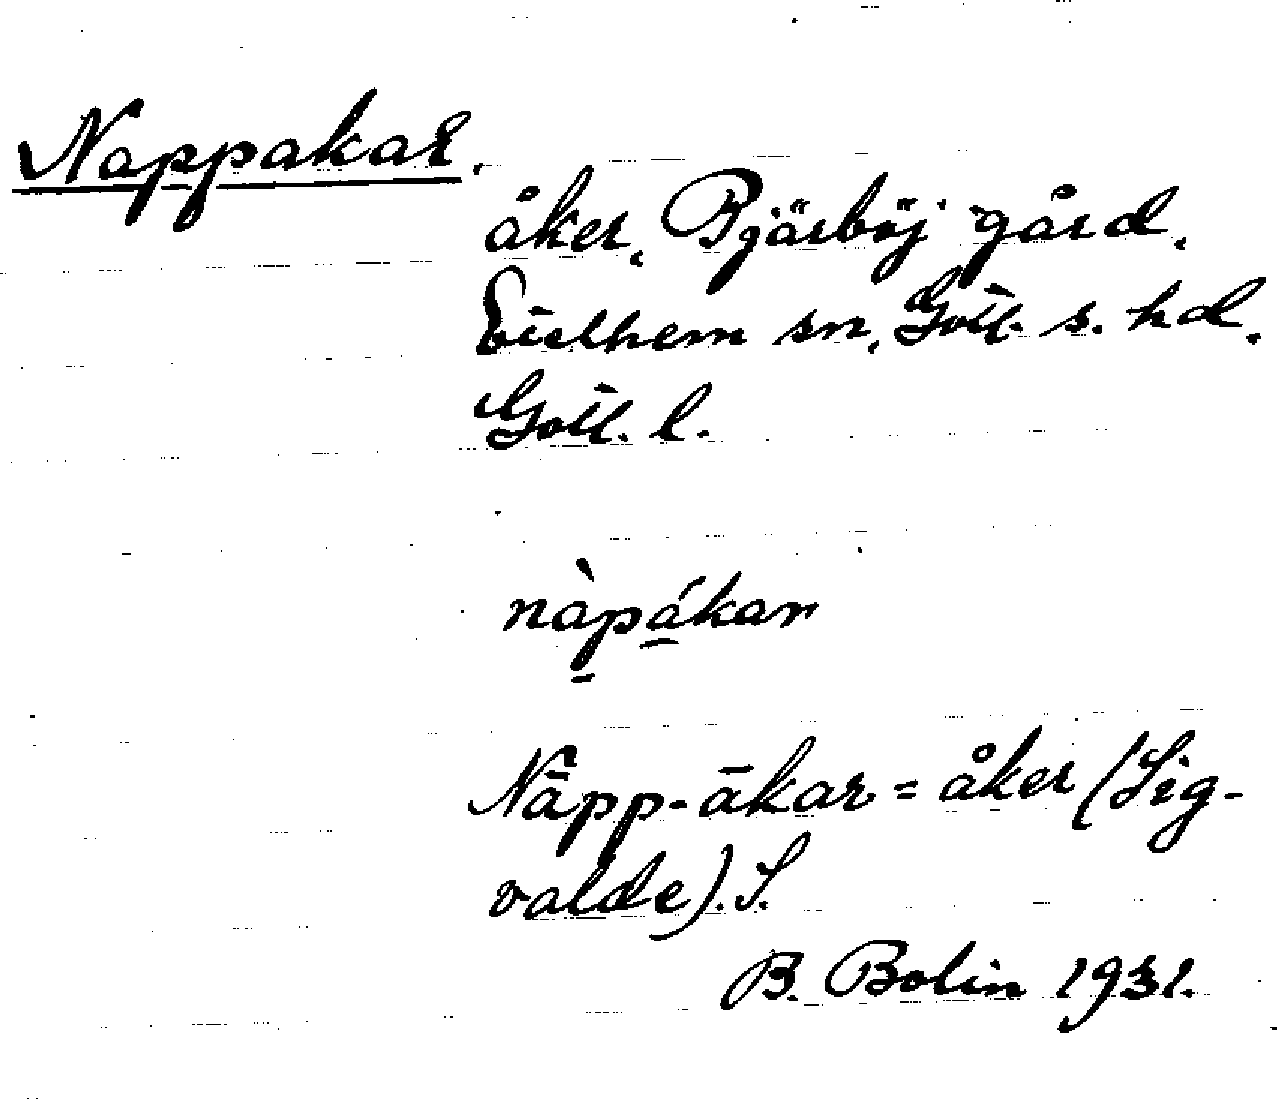 Nappakar.
åker, Bjärböj gård,
Eielhem sn, Gotl. s. hd,
Gotl. l.
nàpákar
Nāpp-ākar = åker (Sig-
valde). S.
B. Bolin 1931.